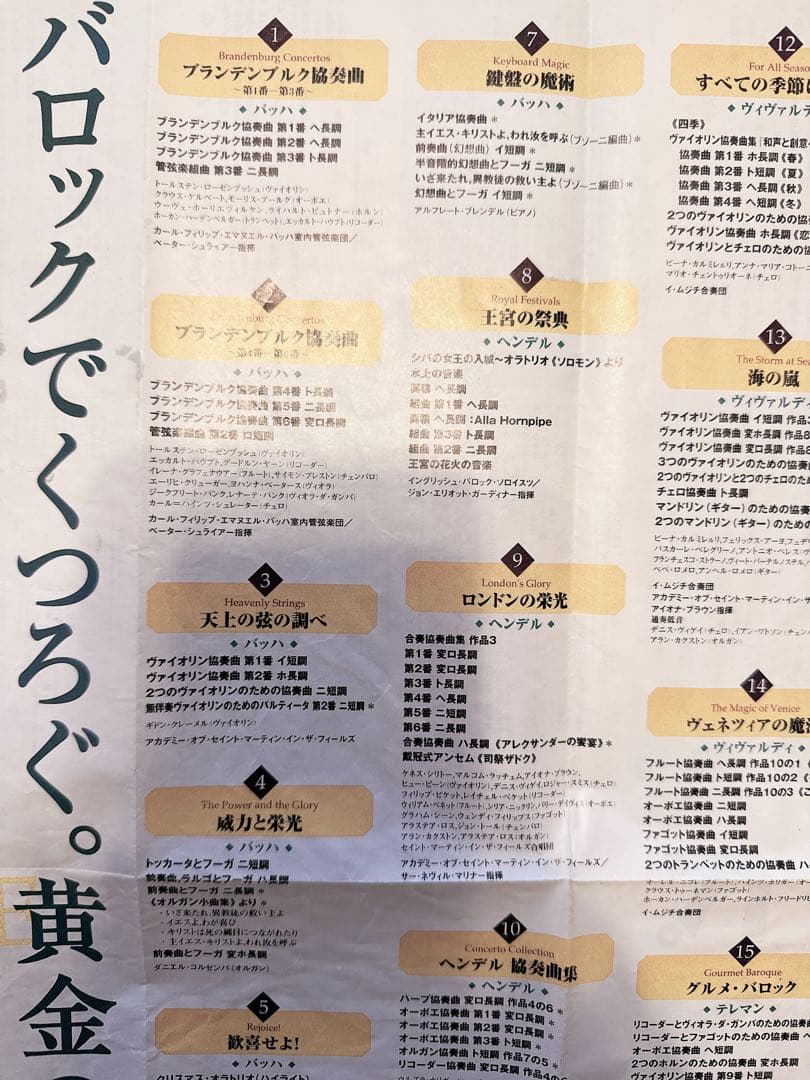 バロックでくつろぐ。黄金
1
Brandenburg Concertos
ブランデンブルク協奏曲
〜第1番―第3番〜
◆ バッハ ◆
ブランデンブルク協奏曲 第1番 ヘ長調
ブランデンブルク協奏曲 第2番 ヘ長調
ブランデンブルク協奏曲 第3番 ト長調
管弦楽組曲 第3番 ニ長調
トールステン・ローゼンブッシュ(ヴァイオリン)
クラウス・ゲルベート、モーリス・ブールグ(オーボエ)
ウーヴェ・ホーリエヴィルケン、ライハルト・ビュトナー(ホルン)
ホーカン・ハーデンベルガー(トランペット)、エッカルト・ハウプト(リコーダー)
カール・フィリップ・エマヌエル・バッハ室内管弦楽団/
ペーター・シュライアー指揮
2
Brandenburg Concertos
ブランデンブルク協奏曲
〜第4番―第6番〜
◆ バッハ ◆
ブランデンブルク協奏曲 第4番 ト長調
ブランデンブルク協奏曲 第5番 ニ長調
ブランデンブルク協奏曲 第6番 変ロ長調
管弦楽組曲 第2番 ロ短調
トールステン・ローゼンブッシュ(ヴァイオリン)
エッカルト・ハウプト、グードルン・ヤーン(リコーダー)
イレーナ・グラフェナウアー(フルート)、サイモン・プレストン(チェンバロ)
エーリヒ・クリューガー、ヨハンナ・ペータース(ヴィオラ)
ジークフリート・パンク、レナーテ・パンク(ヴィオラ・ダ・ガンバ)
カール=ハインツ・シュレーター(チェロ)
カール・フィリップ・エマヌエル・バッハ室内管弦楽団/
ペーター・シュライアー指揮
3
Heavenly Strings
天上の弦の調べ
◆ バッハ ◆
ヴァイオリン協奏曲 第1番 イ短調
ヴァイオリン協奏曲 第2番 ホ長調
2つのヴァイオリンのための協奏曲 ニ短調
無伴奏ヴァイオリンのためのパルティータ 第2番 ニ短調 *
ギドン・クレーメル(ヴァイオリン)
アカデミー・オブ・セイント・マーティン・イン・ザ・フィールズ
4
The Power and the Glory
威力と栄光
◆ バッハ ◆
トッカータとフーガ ニ短調
前奏曲、ラルゴとフーガ ハ長調
前奏曲とフーガ ニ長調 *
《オルガン小曲集》より *
・いざ来たれ、異教徒の救い主よ
・イエスよ、わが喜び
・キリストは死の縄目につながれたり
・主イエス・キリストよ、われ汝を呼ぶ
前奏曲とフーガ 変ホ長調
ダニエル・コルゼンパ(オルガン)
5
Rejoice!
歓喜せよ!
◆ バッハ ◆
クリスマス・オラトリオ(ハイライト)
7
Keyboard Magic
鍵盤の魔術
◆ バッハ ◆
イタリア協奏曲 *
主イエス・キリストよ、われ汝を呼ぶ(ブゾーニ編曲) *
前奏曲(幻想曲) イ短調 *
半音階的幻想曲とフーガ ニ短調 *
いざ来たれ、異教徒の救い主よ(ブゾーニ編曲) *
幻想曲とフーガ イ短調 *
アルフレート・ブレンデル(ピアノ)
8
Royal Festivals
王宮の祭典
◆ ヘンデル ◆
シバの女王の入城〜オラトリオ《ソロモン》より
水上の音楽
組曲 第1番 ヘ長調
ヘ長調:Alla Hornpipe
組曲 第3番 ト長調
組曲 第2番 ニ長調
王宮の花火の音楽
イングリッシュ・バロック・ソロイスツ/
ジョン・エリオット・ガーディナー指揮
9
London's Glory
ロンドンの栄光
◆ ヘンデル ◆
合奏協奏曲集 作品3
第1番 変ロ長調
第2番 変ロ長調
第3番 ト長調
第4番 ヘ長調
第5番 ニ短調
第6番 ニ長調
合奏協奏曲 ハ長調 《アレクサンダーの饗宴》 *
戴冠式アンセム 《司祭ザドク》
ケネス・シリトー、マルコム・ラッチェム、アイオナ・ブラウン、
ヒュー・ビーン(ヴァイオリン)、デニス・ヴィゲイ、ロジャー・スミス(チェロ)
フィリップ・ピケット、レイチェル・ベケット(リコーダー)
ウィリアム・ベネット(フルート)、シリア・ニックリン、バリー・デイヴィス(オーボエ)
グラハム・シーン、ウェンディ・フィリップス(ファゴット)
アラステア・ロス、ジョン・トール(チェンバロ)
アラン・カクストン、アラステア・ロス(オルガン)
セイント・マーティン・イン・ザ・フィールズ合唱団
アカデミー・オブ・セイント・マーティン・イン・ザ・フィールズ/
サー・ネヴィル・マリナー指揮
10
Concerto Collection
ヘンデル 協奏曲集
◆ ヘンデル ◆
ハープ協奏曲 変ロ長調 作品4の6 *
オーボエ協奏曲 第1番 変ロ長調 *
オーボエ協奏曲 第2番 変ロ長調 *
オーボエ協奏曲 第3番 ト短調 *
オルガン協奏曲 ト短調 作品7の5 *
リコーダー協奏曲 変ロ長調 作品4の6
12
For All Seaso
すべての季節に
◆ ヴィヴァルデ
《四季》
ヴァイオリン協奏曲集「和声と創意
協奏曲 第1番 ホ長調《春》
協奏曲 第2番 ト短調《夏》
協奏曲 第3番 ヘ長調《秋》
協奏曲 第4番 ヘ短調《冬》
2つのヴァイオリンのための協奏
ヴァイオリン協奏曲 ホ長調《恋
ヴァイオリンとチェロのための協
ピーナ・カルミレッリ、アンナ・マリア・コトーニ
マリオ・チェントゥリオーネ(チェロ)
イ・ムジチ合奏団
13
The Storm at Sea
海の嵐
◆ ヴィヴァルディ
ヴァイオリン協奏曲 イ短調 作品3
ヴァイオリン協奏曲 変ホ長調 作品8
ヴァイオリン協奏曲 変ロ長調 作品8
3つのヴァイオリンのための協奏曲
2つのヴァイオリンと2つのチェロのため
チェロ協奏曲 ト長調
マンドリン(ギター)のための協奏
2つのマンドリン(ギター)のための
ピーナ・カルミレッリ、フェリックス・アーヨ、フェデリ
パスカーレ・ペレグリーノ、アントニオ・ペレス(ヴ
フランチェスコ・ストラーノ、ヴィート・パーテルノステル、
ペペ・ロメロ、アンヘル・ロメロ(ギター)
イ・ムジチ合奏団
アカデミー・オブ・セイント・マーティン・イン・ザ
アイオナ・ブラウン指揮
通奏低音
デニス・ヴィゲイ(チェロ)、イアン・ワトソン(チェンバ
アラン・カクストン(オルガン)
14
The Magic of Venice
ヴェネツィアの魔法
◆ ヴィヴァルディ ◆
フルート協奏曲 ヘ長調 作品10の1 《
フルート協奏曲 ト短調 作品10の2 《
フルート協奏曲 ニ長調 作品10の3 《ご
オーボエ協奏曲 ニ短調
オーボエ協奏曲 ハ長調
ファゴット協奏曲 イ短調
ファゴット協奏曲 変ロ長調
2つのトランペットのための協奏曲 ハ
オーレル・ニコレ(フルート)、ハインツ・ホリガー(オー
クラウス・トゥーネマン(ファゴット)
ホーカン・ハーデンベルガー、ラインホルト・フリードリヒ
イ・ムジチ合奏団
15
Gourmet Baroque
グルメ・バロック
◆ テレマン ◆
リコーダーとヴィオラ・ダ・ガンバのための協奏曲
リコーダーとファゴットのための協奏曲 ヘ
オーボエ協奏曲 ヘ短調
2つのホルンのための協奏曲 変ホ長調
ヴァイオリン協奏曲 第9番 ト短調